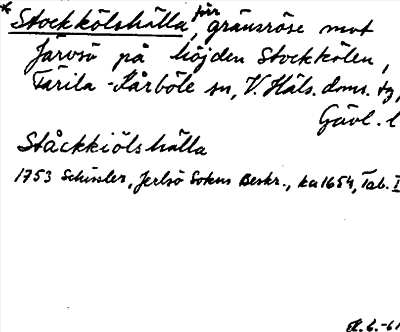 * Stockkölshälla, förr gränsröse mot
Järvsö på höjden Stockkölen,
Färila-Kårböle sn, V. Häls. doms. tg,
Gävl. l
Ståckkiölshälla
1753 Schissler, Jerfsö Sokns Beskr., ka 1654, Tab. I
H. G. -61